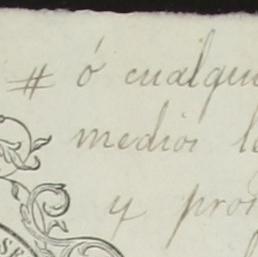 # ó cualque
medios le
y pros
SE